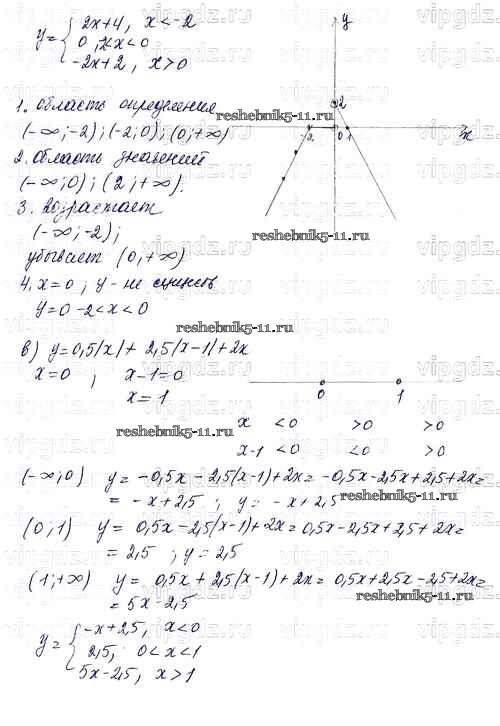 y = { 2x+4, x<-2
0, -2<x<0
-2x+2, x>0
y
2
-2 0 1 x
1. Область определения
(-∞;-2); (-2;0); (0;+∞)
reshebnik5-11.ru
2. Область значений
(-∞;0); (2;+∞).
3. возрастает
(-∞;-2);
reshebnik5-11.ru
убывает (0;+∞)
4. x=0; y - не существ
y=0 -2<x<0
reshebnik5-11.ru
в) y=0,5|x|+2,5|x-1|+2x
x=0 ; x-1=0
x=1
0 1
reshebnik5-11.ru
x <0 >0 >0
x-1 <0 <0 >0
(-∞;0) y=-0,5x-2,5(x-1)+2x=-0,5x-2,5x+2,5+2x=
=-x+2,5 ; y=-x+2,5
reshebnik5-11.ru
(0;1) y=0,5x-2,5(x-1)+2x=0,5x-2,5x+2,5+2x=
=2,5 ; y=2,5
(1;+∞) y=0,5x+2,5(x-1)+2x=0,5x+2,5x-2,5+2x=
=5x-2,5
reshebnik5-11.ru
y= { -x+2,5, x<0
2,5, 0<x<1
5x-2,5, x>1
vipgdz.ru